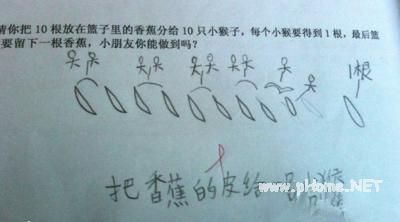 请你把 10 根放在篮子里的香蕉分给 10 只小猴子，每个小猴要得到 1 根，最后篮
要留下一根香蕉，小朋友你能做到吗？
1根
把香蕉的皮给一只小猴
www.pHome.NET